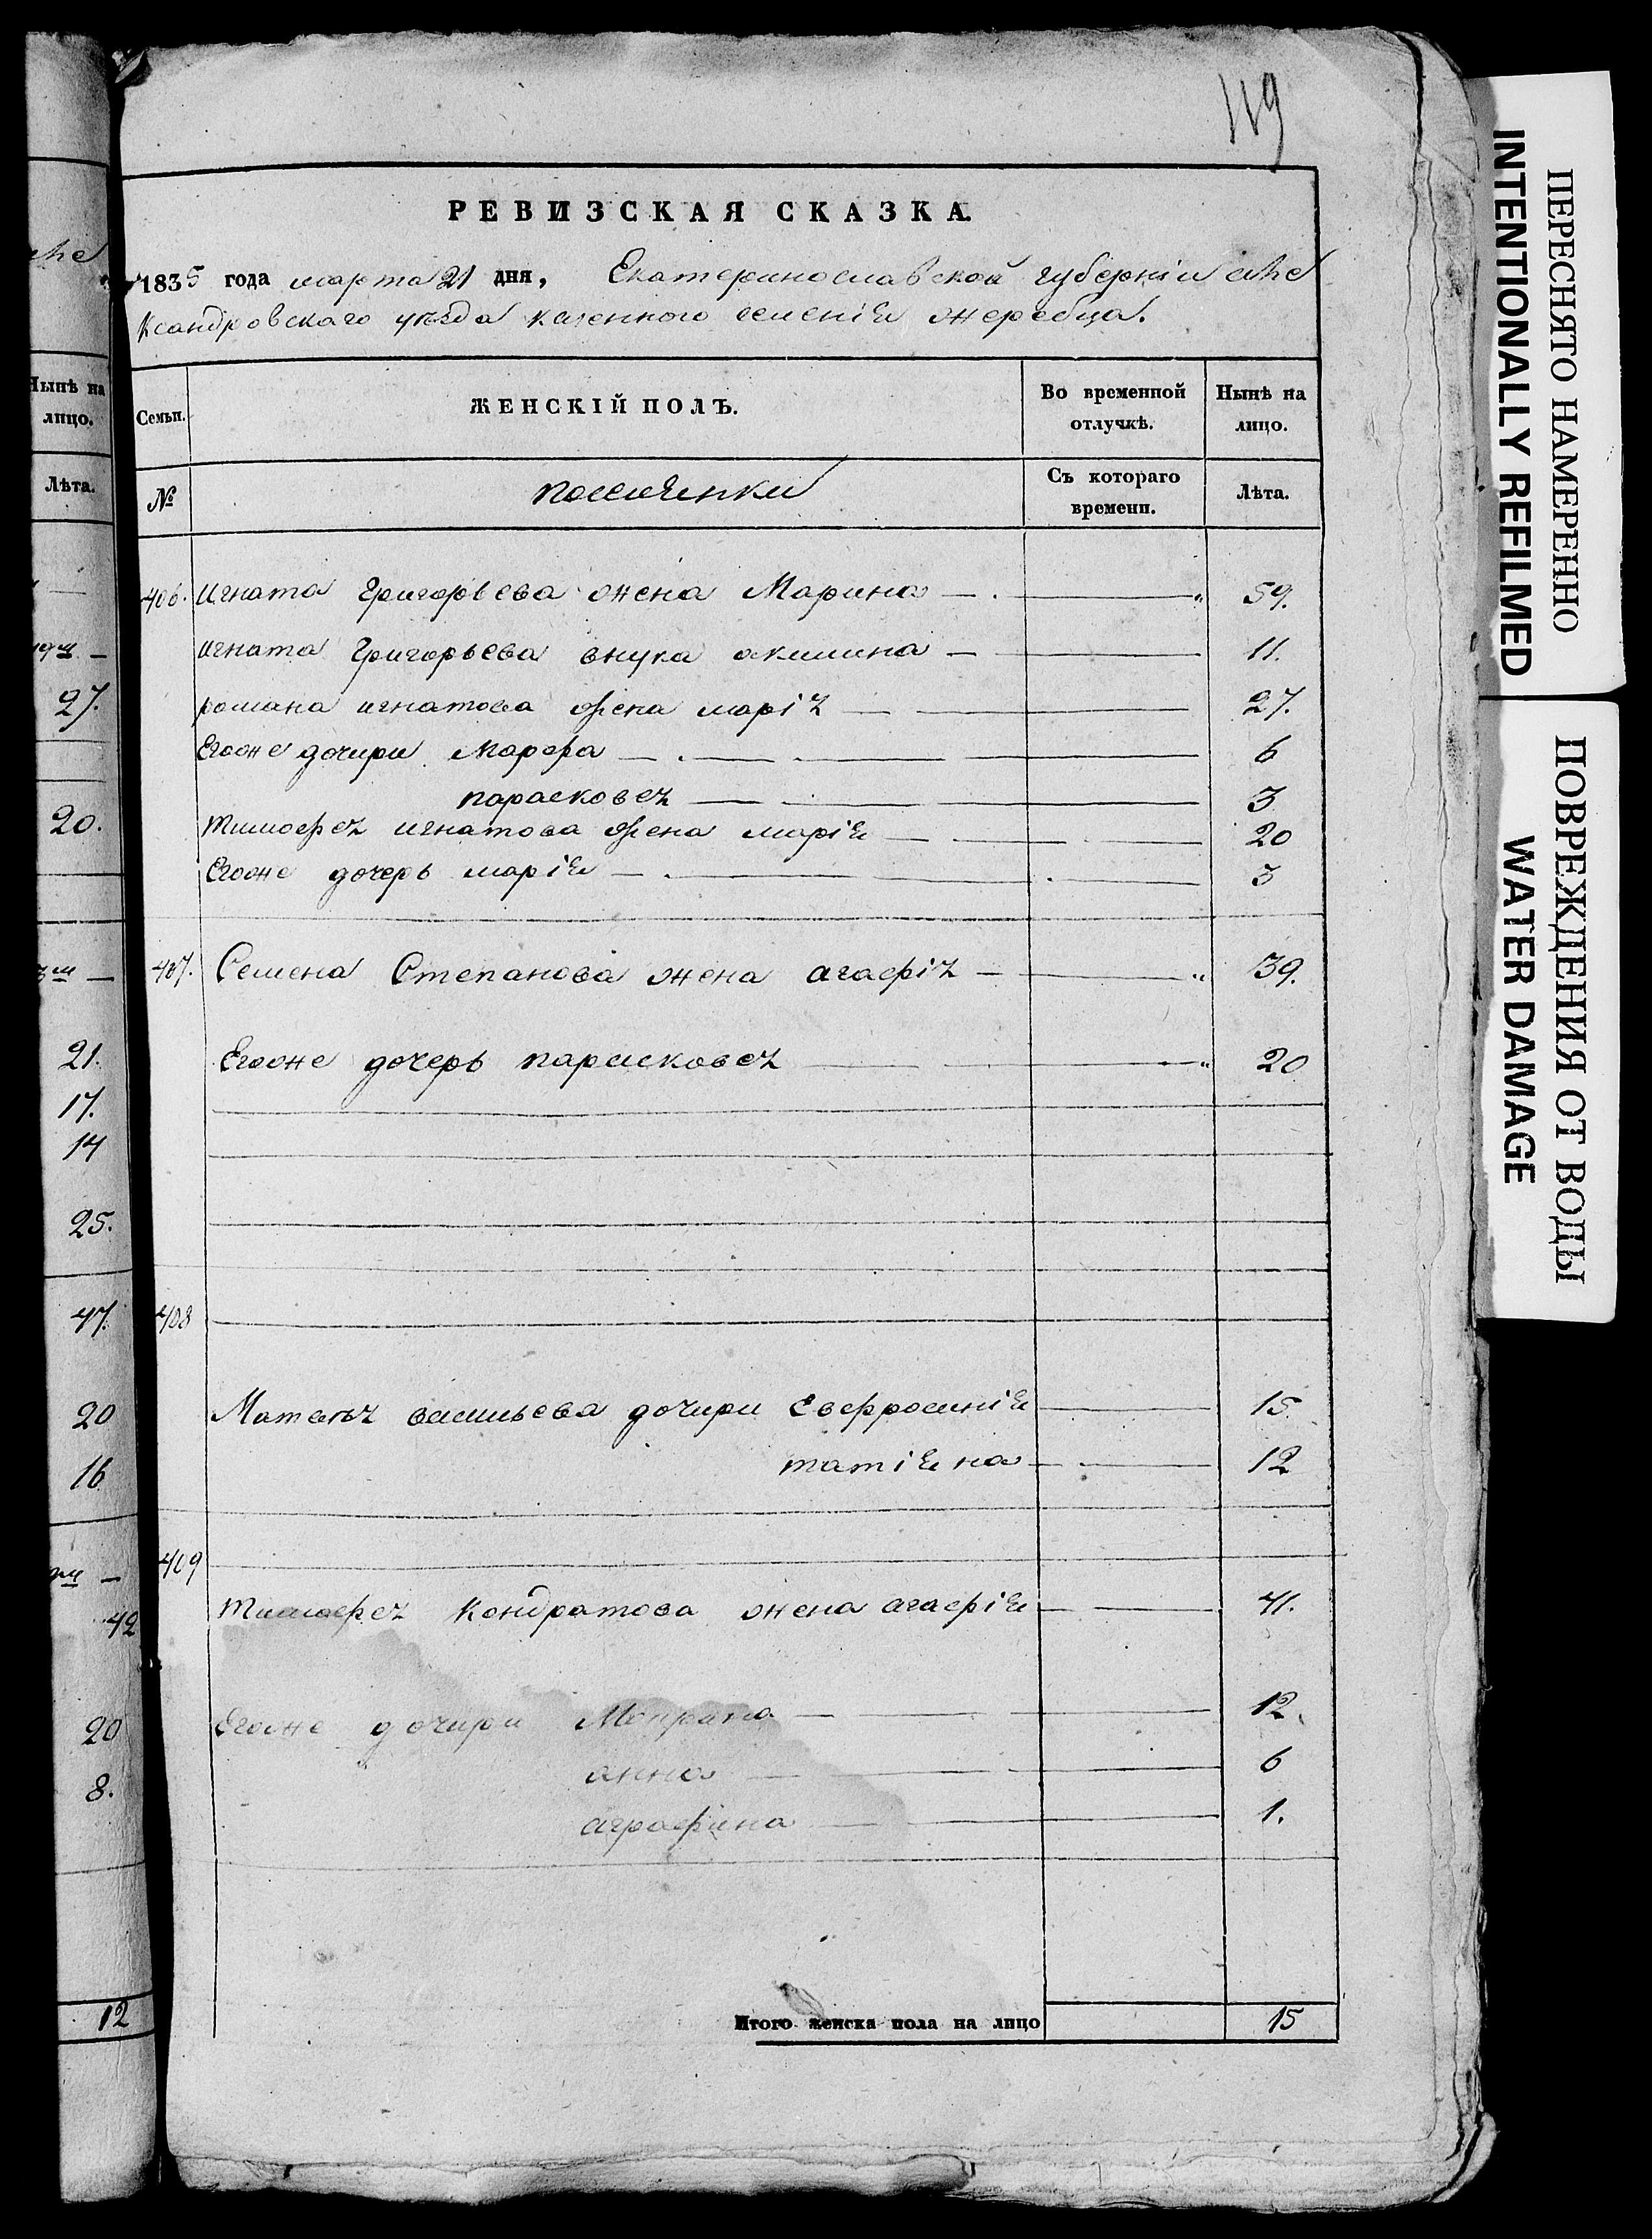 119
РЕВИЗСКАЯ СКАЗКА.
1835 года марта 21 дня, Екатеринославской губерніи але
ксандровскаго уѣзда казенного селенія жеребца.
Семьи. ЖЕНСКІЙ ПОЛЪ. Во временной отлучкѣ. Нынѣ на лицо.
№ поселянки Съ котораго времени. Лѣта.
406. игната Григорьева жена Марина — 59.
игната Григорьева внука акилина — 11.
романа игнатова жена марія — 27.
Егоже дочири Марфа — 6
парасковея — 3
тимофея игнатова жена марія — 20
Егоже дочерь марія — 3
407. Семена Степанова жена агафія — 39.
Егоже дочерь парасковея — 20
408
Матвѣя васильева дочири Евфросинія — 15.
татіяна — 12
409
тимофея Кондратова жена агафія — 41.
Егоже дочири — 12.
анна — 6
аграфина — 1.
Итого женска пола на лицо 15
але
Нынѣ на
лицо.
Лѣта.
27.
20.
21.
17.
14
25.
47.
20
16
42
20
8.
12
ПЕРЕСНЯТО НАМЕРЕННО
INTENTIONALLY REFILMED
ПОВРЕЖДЕНИЯ ОТ ВОДЫ
WATER DAMAGE